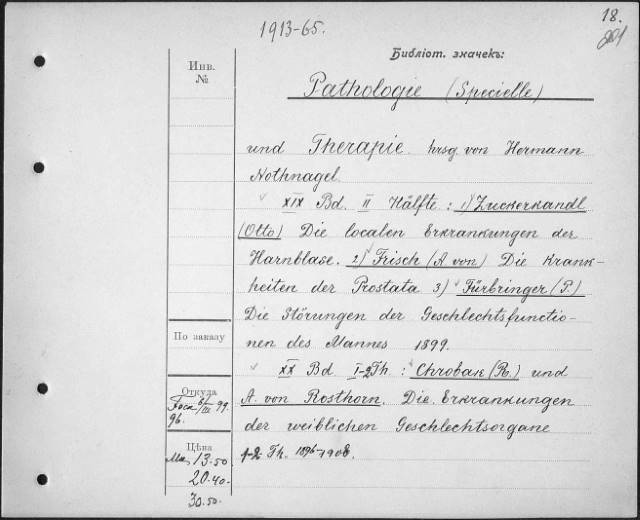 1913-65.
18.
201
Библіот. значекъ:
Инв.
№
Pathologie (Specielle)
und Therapie hrsg. von Hermann
Nothnagel.
XIX Bd. II Hälfte: 1) Zuckerkandl
(Otto) Die localen Erkrankungen der
Harnblase. 2) Frisch (A von) Die Krank-
heiten der Prostata 3) Fürbringer (P.)
Die Störungen der Geschlechtsfunctio-
nen des Mannes 1899.
XX Bd I-2 Th.: Chrobak (R.) und
A. von Rosthorn. Die Erkrankungen
der weiblichen Geschlechtsorgane
1-2 Th. 1896-1908.
По заказу
Откуда
III 99.
96.
Цѣна
13.50
20.40.
30.50.